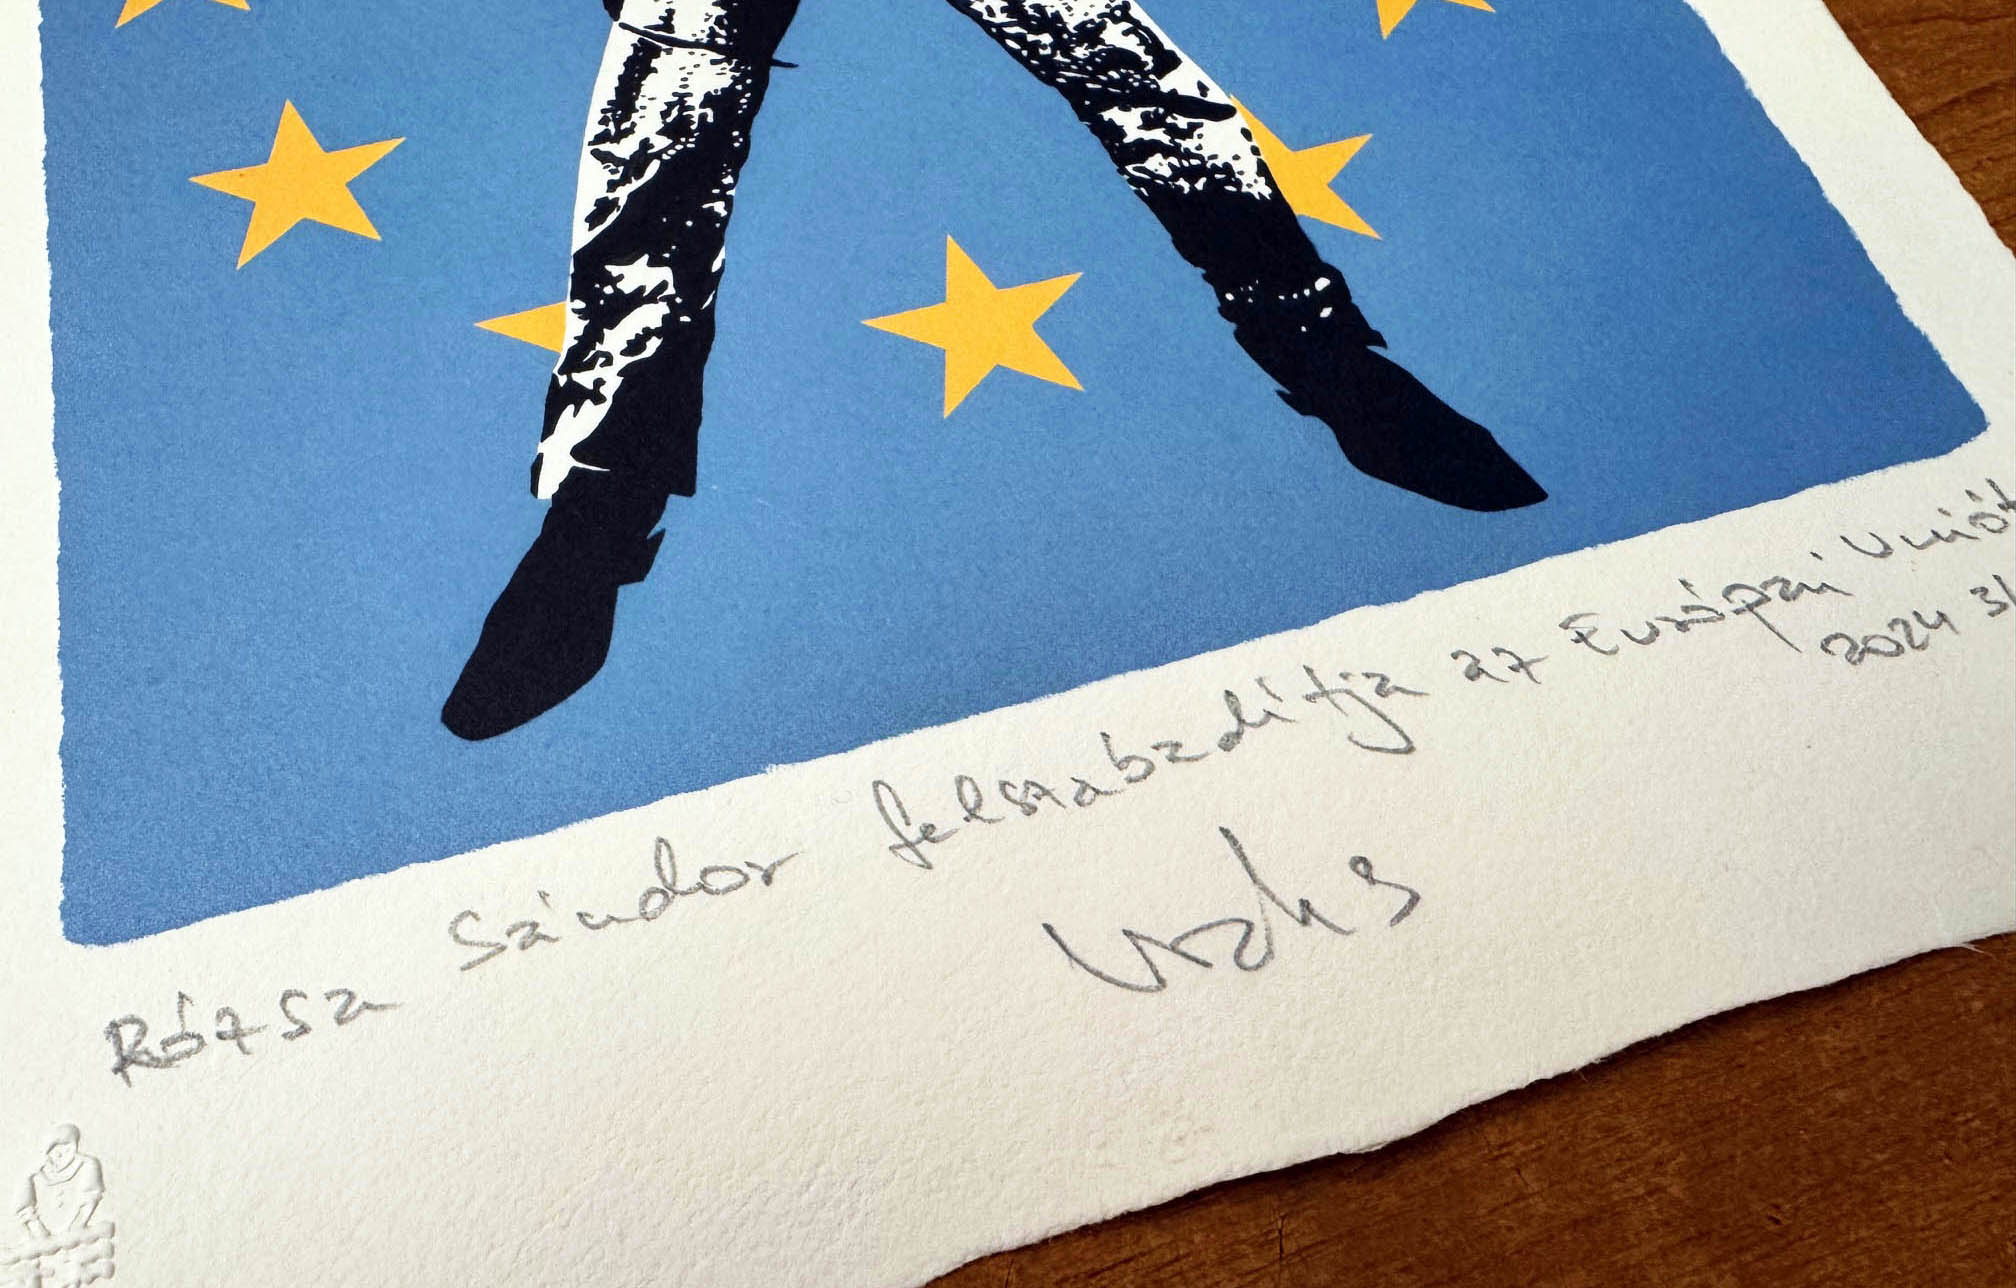 Rózsa Sándor felszabadítja az Európai Uniót
2024 3/